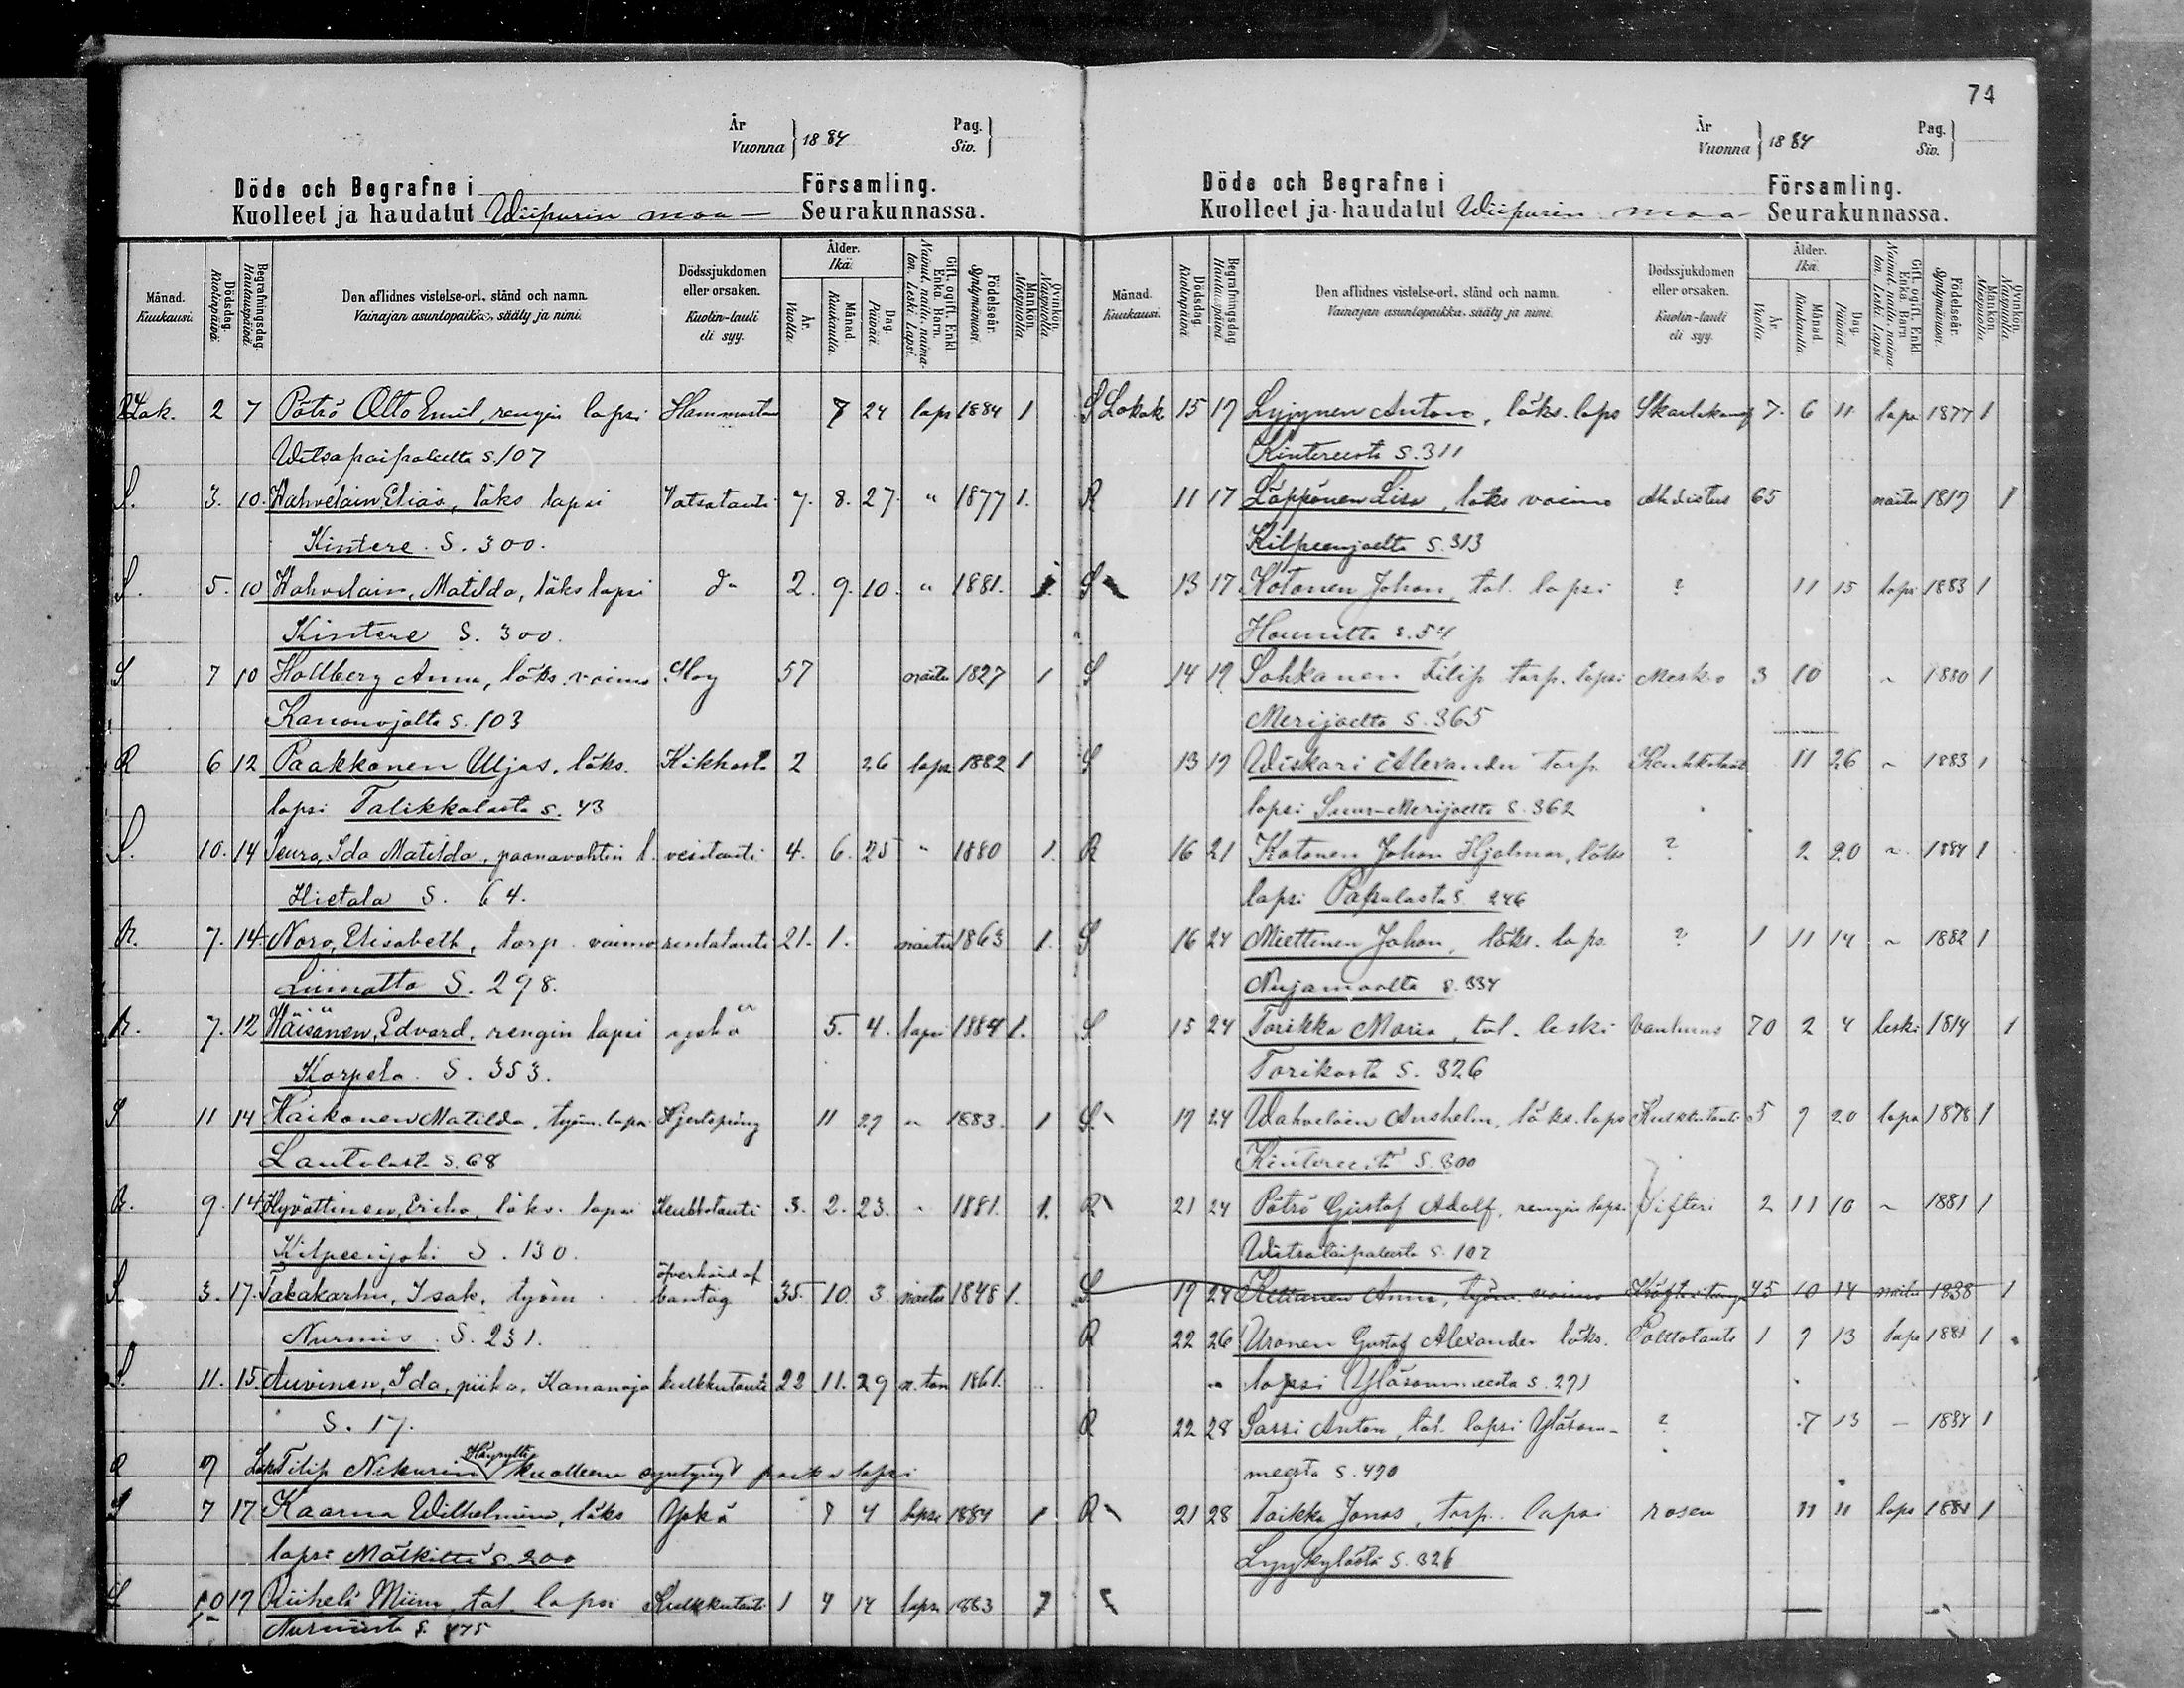 År
Vuonna } 1884
Pag.
Siv. }
Döde och Begrafne i Församling.
Kuolleet ja haudatut Wiipurin maa- Seurakunnassa.
Månad. Kuukausi.
Dödsdag. Kuolinpäivä.
Begrafningsdag. Hautauspäivä.
Den aflidnes vistelse-ort, stånd och namn.
Vainajan asuntopaikka, sääty ja nimi.
Dödssjukdomen eller orsaken.
Kuolin-tauti eli syy.
Ålder. Ikä.
År. Vuotta.
Månad. Kuukautta.
Dag. Päivää.
Gift, ogift, Enkl. Enka. Barn.
Nainut, naimaton. Leski. Lapsi.
Födelseår. Syntymävuosi.
Mankön. Miespuolia.
Qvinkön. Naispuolia.
R Lok. 2 7 Pötrö Otto Emil, rengin lapsi 8 24 laps 1884 1
s. 107
S. 3. 10. Wahvelain, Elias, läks lapsi Vatsatauti 7. 8. 27. " 1877 1.
Kintere. S. 300.
S. 5. 10 Wahvelain, Matilda, läks lapsi do 2. 9. 10. " 1881. 1.
Kintere S. 300.
S 7 10 Hallberg Anna, läks. vaimo 57 naitu 1827 1
s. 103
R 6 12 Paakkonen Uljas, läks. 2 26 laps 1882 1
lapsi Talikkalasta s. 43
S. 10. 14 Seuro, Ida Matilda, l. vesitauti 4. 6. 25 " 1880 1.
Hietala S. 64.
R. 7. 14 Noro, Elisabeth, torp. vaimo rintatauti 21. 1. naitu 1863 1.
Liimatta S. 298.
R. 7. 12 Häisänen, Edvard, rengin lapsi yskä 5. 4. lapsi 1884 1.
Karpela. S. 353.
S 11 14 Haikonen Matilda, työm. lapsi 11 27 " 1883. 1
s. 68
R. 9. 14 Hyvättinen, läks. lapsi 3. 2. 23. " 1881. 1.
Kilpeenjoki S. 130.
S. 3. 17. Takakarhu, Isak, työm. 35. 10. 3. naitu 1848 1.
Nurmis. S. 231.
S. 11. 15 Auvinen, Ida, piika, Kananoja kulkkutauti 22 11. 29 n.ton 1861.
S. 17.
R 7 Filip Nikurin kuolleena syntynyt poika lapsi
S 7 17 Kaarna Wilhelmina, läks Yskä 8 4 lapsi 1884 1
lapsi Mälkiltä s. 200
S 10 17 Riihelä Miina, tal. lapsi Kulkkutauti 1 4 14 laps 1883 1
Nurmista S. 175
74
År
Vuonna } 1884
Pag.
Siv. }
Döde och Begrafne i Församling.
Kuolleet ja haudatut Wiipurin maa- Seurakunnassa.
Månad. Kuukausi.
Dödsdag. Kuolinpäivä.
Begrafningsdag. Hautauspäivä.
Den aflidnes vistelse-ort, stånd och namn.
Vainajan asuntopaikka, sääty ja nimi.
Dödssjukdomen eller orsaken.
Kuolin-tauti eli syy.
Ålder. Ikä.
År. Vuotta.
Månad. Kuukautta.
Dag. Päivää.
Gift, ogift, Enkl. Enka. Barn.
Nainut, naimaton. Leski. Lapsi.
Födelseår. Syntymävuosi.
Mankön. Miespuolia.
Qvinkön. Naispuolia.
S Lokak. 15 17 Lyjynen Anton, läks. laps 7. 6 11 laps 1877 1
s. 311
R 11 17 Läppönen Lisa, läks vaimo Ahdistus 65 naitu 1819 1
Kilpeenjoelta s. 313
S 13 17 Kotonen Johan, tal. lapsi ? 11 15 lapsi 1883 1
s. 54
S 14 19 Sohkanen Filip torp. lapsi 3 10 " 1880 1
Merijoelta s. 365
S 13 19 Wiskari Alexander torp. 11 26 " 1883 1
lapsi Suur-Merijoelta s. 362
R 16 21 Katonen Johan Hjalmar, läks ? 2 20 " 1884 1
lapsi Papulasta s. 246
S 16 24 Miettinen Johan, läks. laps. ? 1 11 14 " 1882 1
Nujamaalta s. 334
S 15 24 Torikka Maria, tal. leski vanhuus 70 2 4 leski 1814 1
Torikasta S. 326
S 19 24 Wahvelain Anshelm, läks. laps Kulkkutauti 5 9 20 laps 1878 1
s. 300
R 21 24 Pötrö Gustaf Adolf, rengin lapsi Difteri 2 11 10 " 1881 1
s. 107
S 19 24 Anna, työm. vaimo 45 10 14 naitu 1838 1
R 22 26 Uronen Gustaf Alexander läks. Polttotauti 1 9 13 laps 1881 1
lapsi Yläsommeesta s. 291
R 22 28 Sassi Anton, tal. lapsi Yläsom- ? 7 13 — 1884 1
meesta s. 490
R 21 28 Taikka Jonas, torp. lapsi rosen 11 11 laps 1881 1
Lyykylästä s. 326